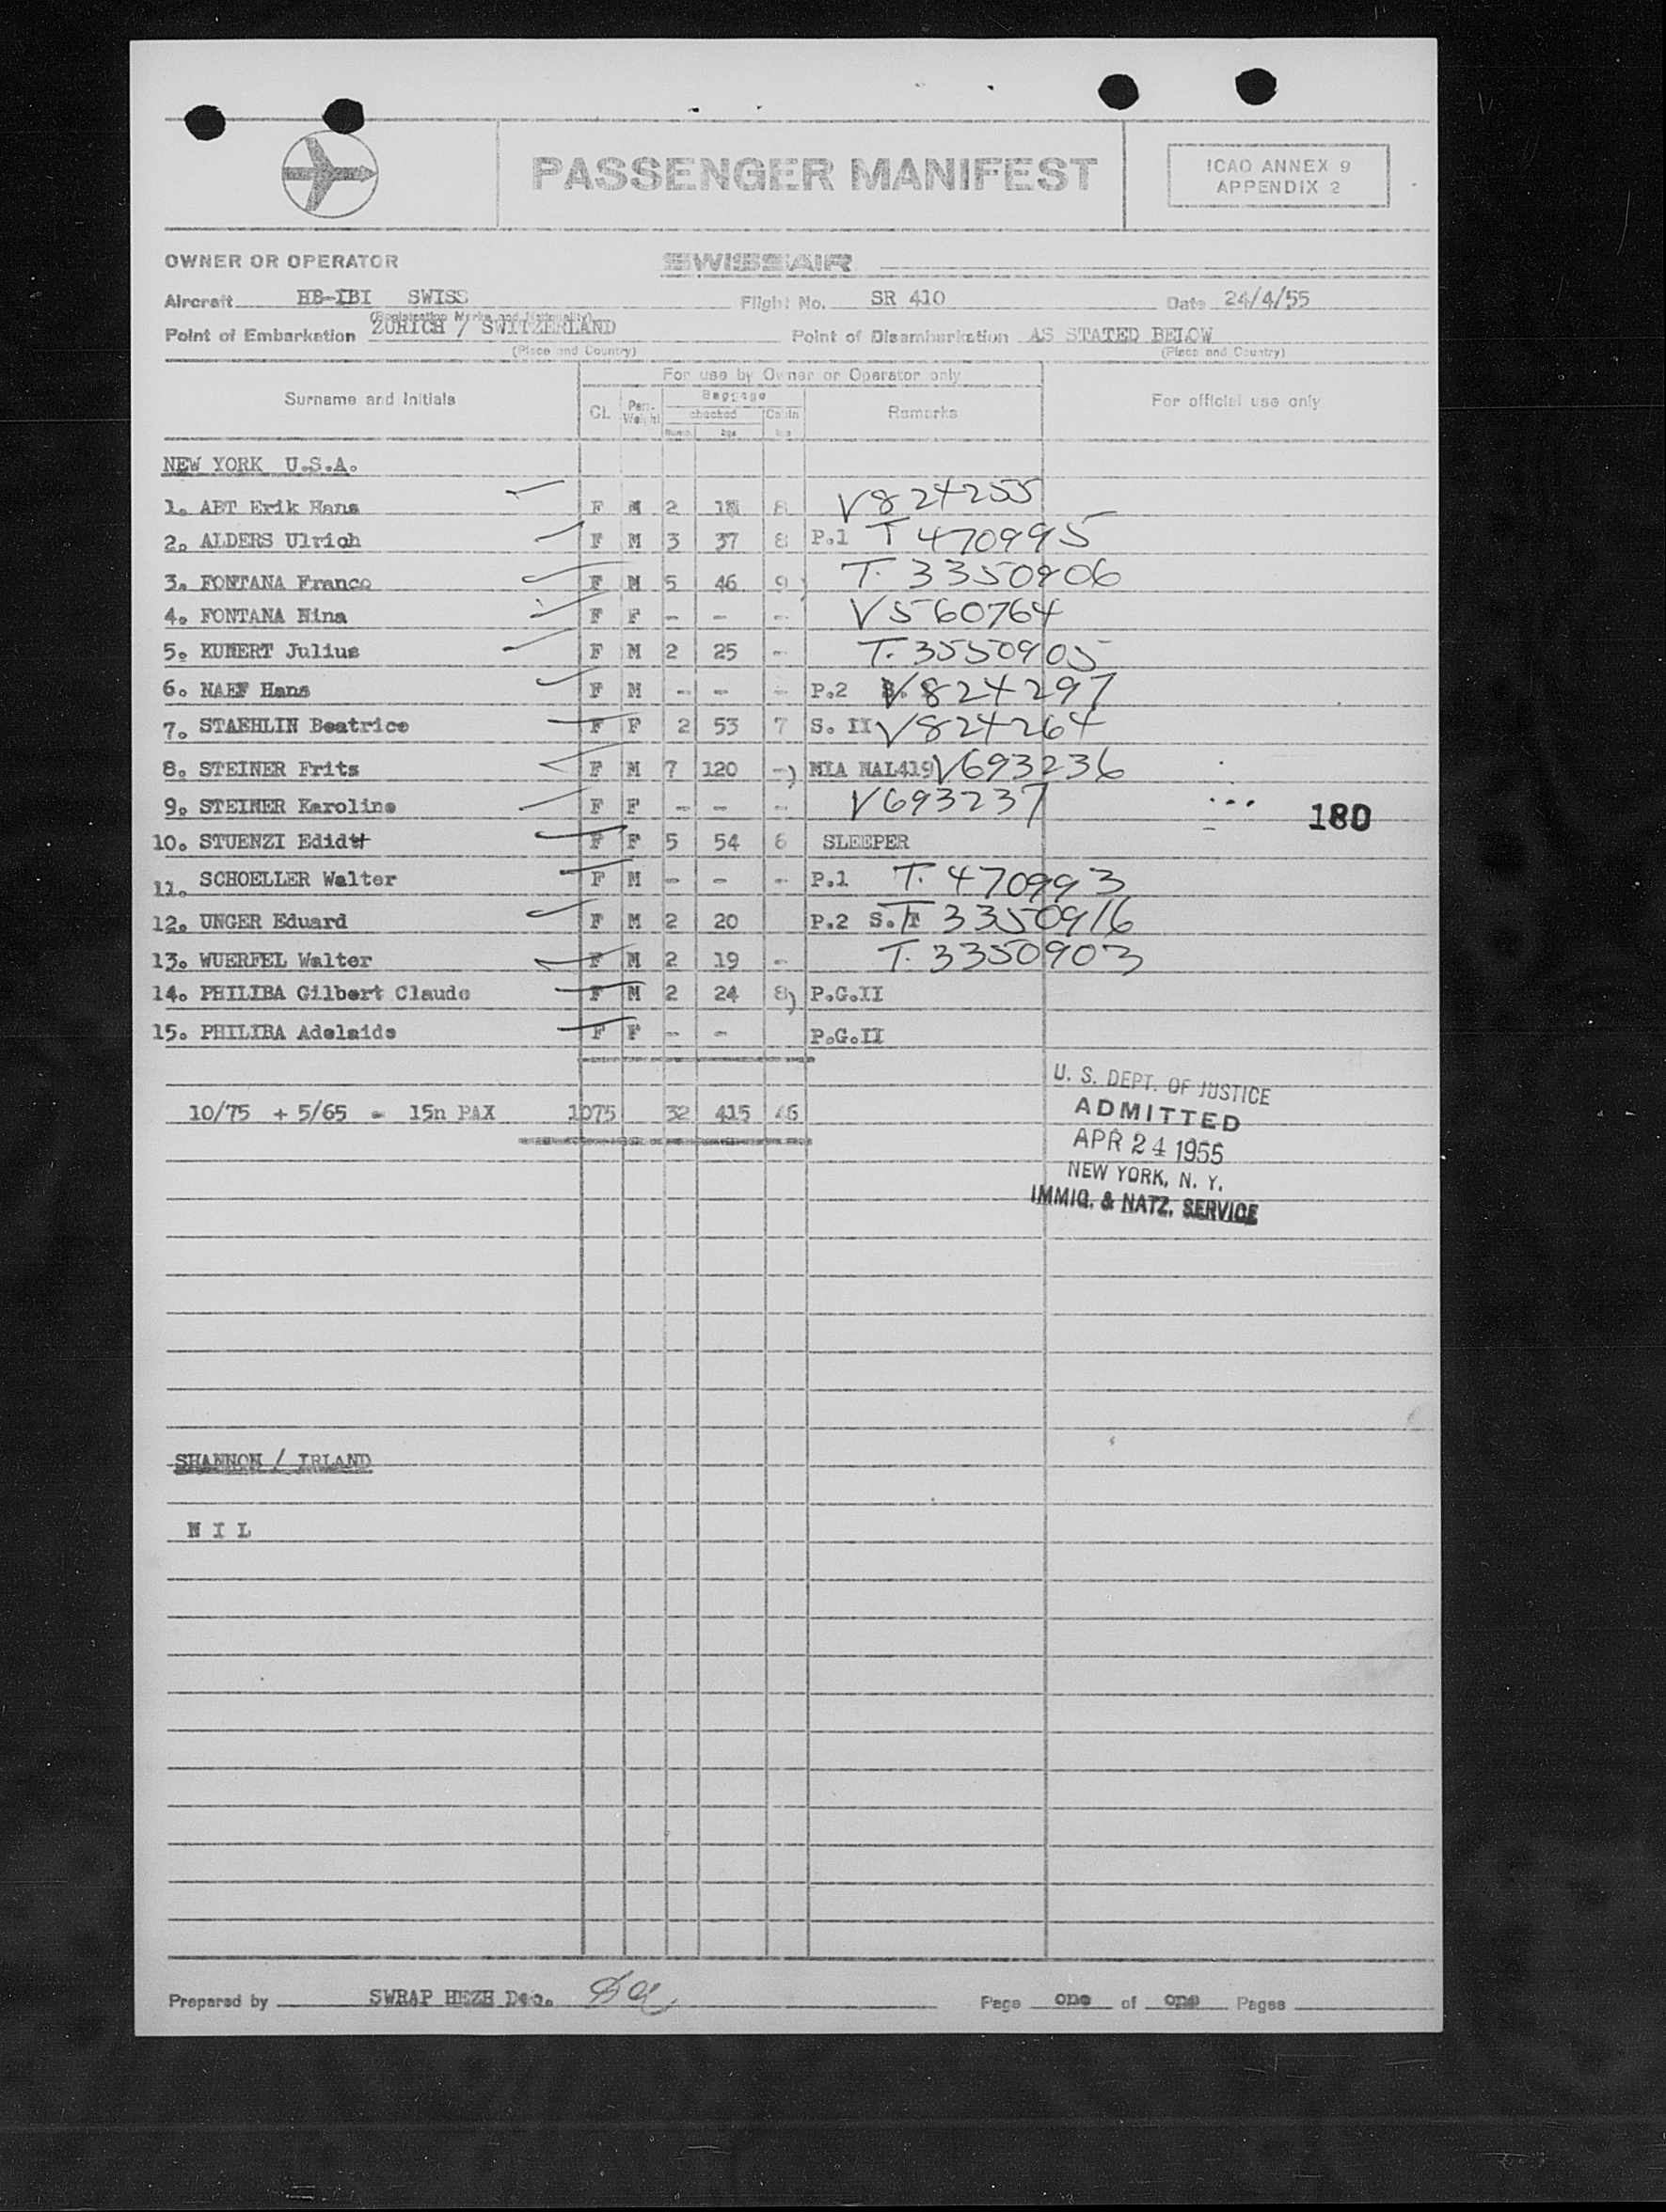 PASSENGER MANIFEST
ICAO ANNEX 9
APPENDIX 2
OWNER OR OPERATOR SWISSAIR
Aircraft HB-IBI SWISS Flight No. SR 410 Date 24/4/55
(Registration Marks and Nationality)
Point of Embarkation ZURICH / SWITZERLAND Point of Disembarkation AS STATED BELOW
(Place and Country) (Place and Country)
For use by Owner or Operator only
Surname and Initials Cl. Baggage Remarks For official use only
checked Cabin
NEW YORK U.S.A.
1. ABT Erik Hans F M 2 8 V824255
2. ALDERS Ulrich F M 3 37 8 P.1 T 470995
3. FONTANA Franco F M 5 46 9) T. 3350906
4. FONTANA Nina F F - - - V560764
5. KUNERT Julius F M 2 25 - T. 3550905
6. NAEF Hans F M - - - P.2 V824297
7. STAEHLIN Beatrice F F 2 53 7 S. II V824264
8. STEINER Frits F M 7 120 -) MIA NAL419 V693236
9. STEINER Karoline F F - - - V693237
180
10. STUENZI Edidt F F 5 54 6 SLEEPER
11. SCHOELLER Walter F M - - - P.1 T. 470993
12. UNGER Eduard F M 2 20 P.2 S. T 3350916
13. WUERFEL Walter F M 2 19 - T. 3350903
14. PHILIBA Gilbert Claude F M 2 24 8) P.G.II
15. PHILIBA Adelaide F F - - P.G.II
10/75 + 5/65 = 15n PAX 1075 32 415 46
U. S. DEPT. OF JUSTICE
ADMITTED
APR 24 1955
NEW YORK, N. Y.
IMMIG. & NATZ. SERVICE
SHANNON / IRLAND
N I L
Prepared by SWRAP HEZH Page one of one Pages